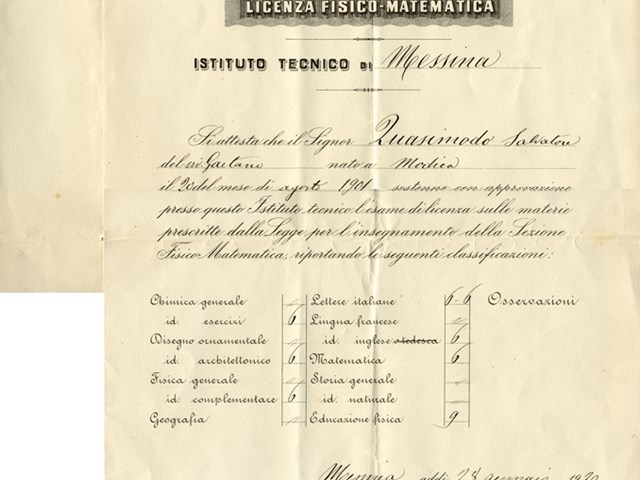 LICENZA FISICO-MATEMATICA
ISTITUTO TECNICO DI Messina
Si attesta che il Signor Quasimodo Salvatore
del Gaetano nato a Modica
il 20 del mese di agosto 1901 sostenne con approvazione
presso questo Istituto tecnico l'esame di licenza sulle materie
prescritte dalla Legge per l'insegnamento della Sezione
Fisico Matematica, riportando le seguenti classificazioni:
Chimica generale Lettere italiane 6-6 Osservazioni
id. esercizi 6 Lingua francese
Disegno ornamentale id. inglese o tedesca 6
id. architettonico 6 Matematica 6
Fisica generale Storia generale
id. complementare 6 id. naturale
Geografia Educazione fisica 9
Messina addì 28 gennaio 1920